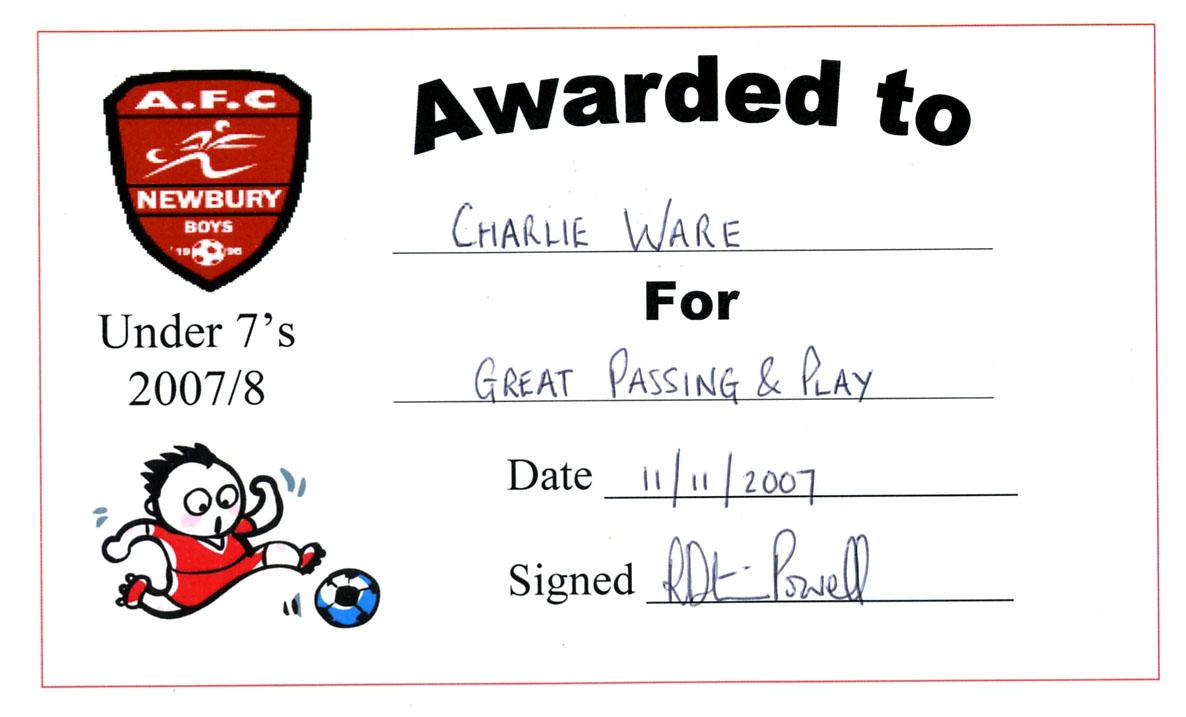 A.F.C
NEWBURY
BOYS
Under 7's
2007/8
Awarded to
CHARLIE WARE
For
GREAT PASSING & PLAY
Date 11/11/2007
Signed Powell